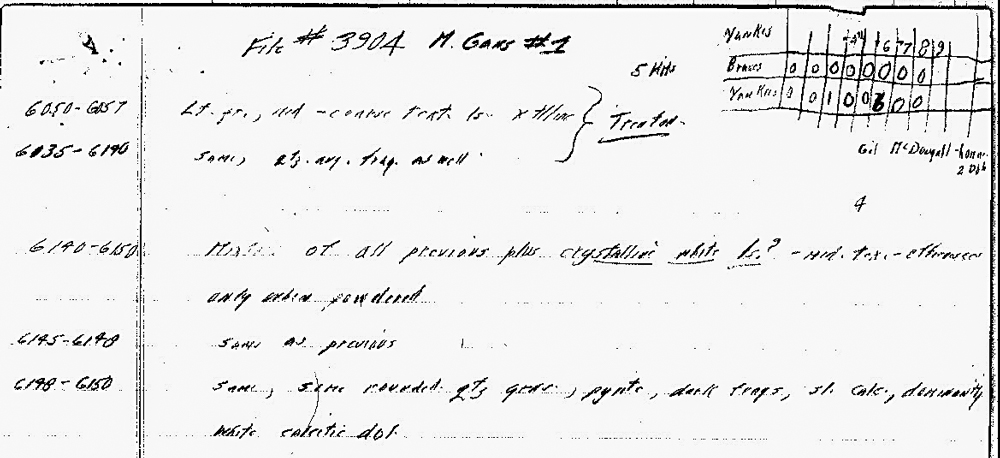 File # 3904 M. Gans #1
Yankees 6 7 8 9
Braves 0 0 0 0 0 0 0 0
Yankees 0 0 1 0 0 0 0
5 Hits
6050-6057 Lt. gr., med-coarse text. ls. Treated
6035-6140 same, qtz. ang. frag. as well
Gil McDougall-homer
2 Dbl
4
6140-6150 of all previous plus crystalline white ls.? - med. tex. - effervesces
only when powdered
6145-6148 same as previous
6148-6150 same, some rounded qtz grns, pyrite, dark frags, sl. calc., dominantly
white calcitic dol.